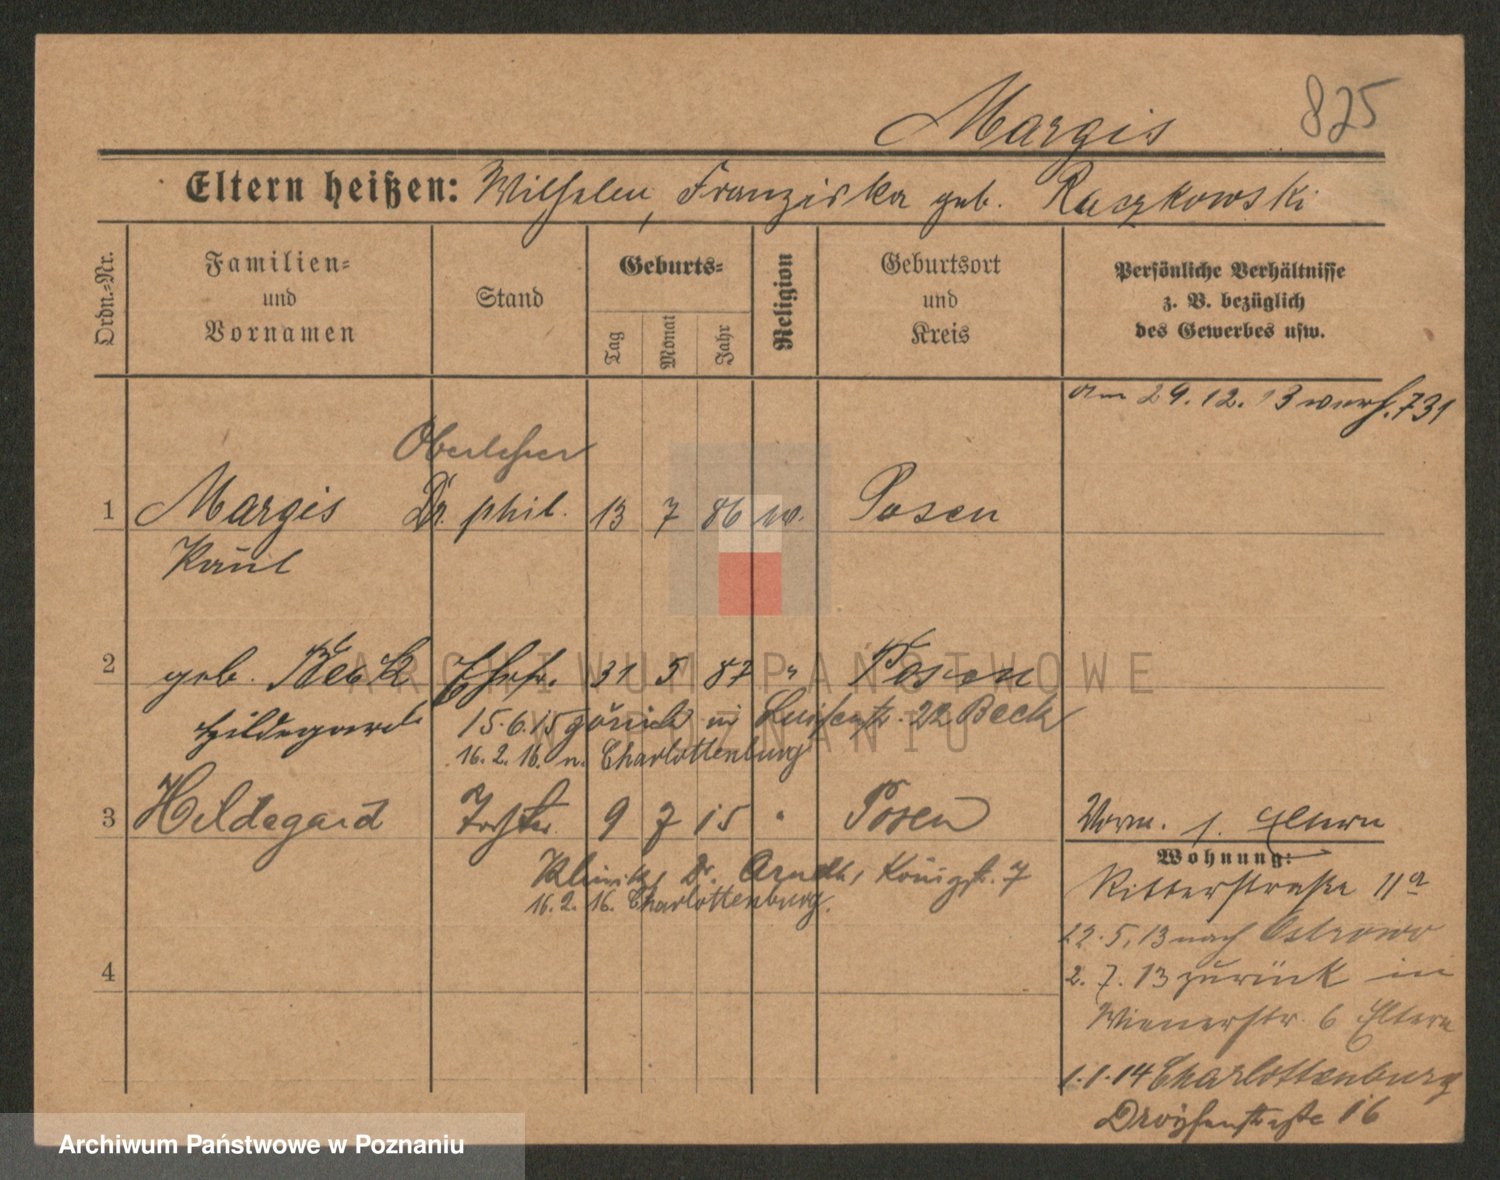 Margis 825
Eltern heißen: Wilhelm, Franziska geb. Raczkowski
Ordn.-Nr.
Familien- und Vornamen
Stand
Geburts-
Tag
Monat
Jahr
Religion
Geburtsort und Kreis
Persönliche Verhältnisse z. B. bezüglich des Gewerbes usw.
am 29. 12. 13 verh. 731
Oberlehrer
1 Margis Dr. phil. 13 7 86 w. Posen
Paul
2 geb. Beck Ehefr. 31 5 87 " Posen
Hildegard
15.6.15 zurück in Luisenstr. 22 Beck
16. 2. 16. n. Charlottenburg
3 Hildegard Tochter 9 7 15 " Posen
Klinik, Dr. Arndt, Königstr. 7
16. 2. 16. Charlottenburg.
4
Vorm. s. Eltern
Wohnung:
Ritterstraße 11a
22. 5. 13 nach Ostrowo
2. 7. 13 zurück in
Wienerstr. 6 Eltern
1. 1. 14 Charlottenburg
Droysenstraße 16
ARCHIWUM PAŃSTWOWE
W POZNANIU
Archiwum Państwowe w Poznaniu